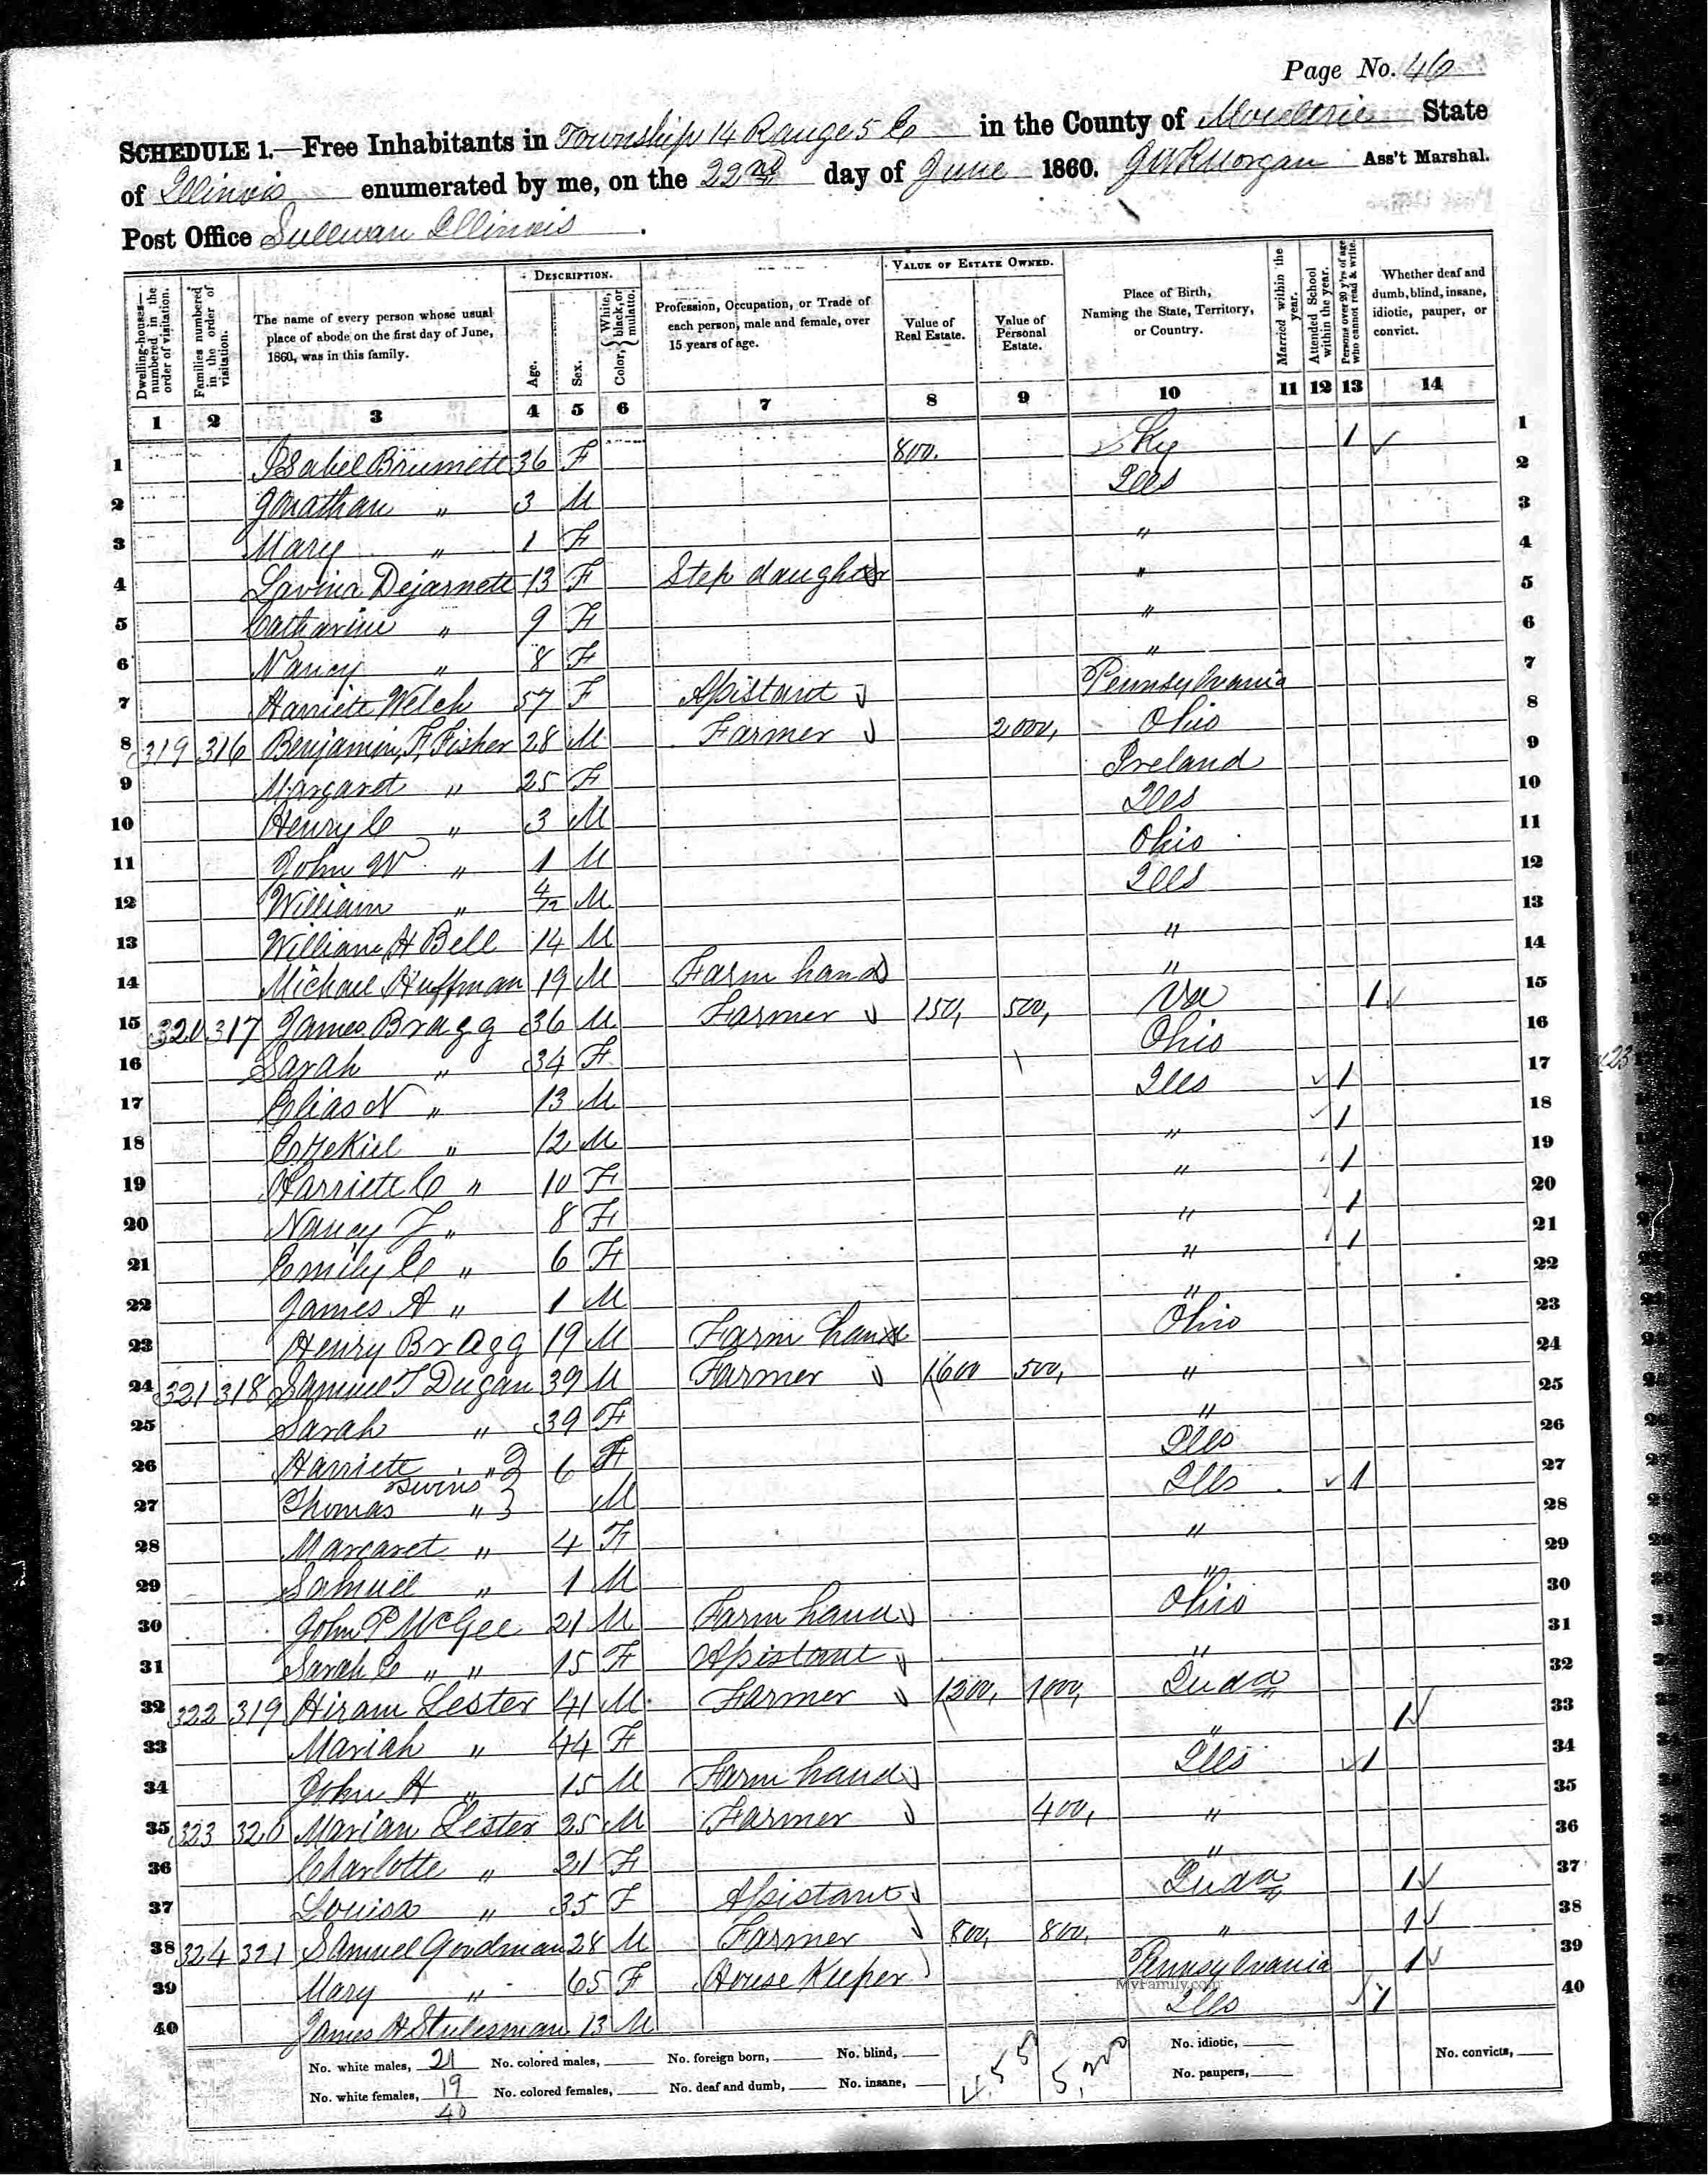 Page No. 46
SCHEDULE 1.—Free Inhabitants in Township 14 Range 5 E in the County of Moultrie State
of Illinois enumerated by me, on the 22nd day of June 1860. G W R Morgan Ass't Marshal.
Post Office Sullivan Illinois
Dwelling-houses—numbered in the order of visitation.
Families numbered in the order of visitation.
The name of every person whose usual place of abode on the first day of June, 1860, was in this family.
DESCRIPTION.
Age.
Sex.
Color, {White, black, or mulatto.
Profession, Occupation, or Trade of each person, male and female, over 15 years of age.
VALUE OF ESTATE OWNED.
Value of Real Estate.
Value of Personal Estate.
Place of Birth, Naming the State, Territory, or Country.
Married within the year.
Attended School within the year.
Persons over 20 y'rs of age who cannot read & write.
Whether deaf and dumb, blind, insane, idiotic, pauper, or convict.
1 2 3 4 5 6 7 8 9 10 11 12 13 14
1 Isabel Brumett 36 F 800. Ky 1 1
2 Jonathan " 3 M Ills 2
3 Mary " 1 F " 3
4 Lavina Dejarnett 13 F Step daughter " 4
5 Catharine " 9 F " 5
6 Nancy " 8 F " 6
7 Harriett Welch 57 F Assistant Pennsylvania 7
8 319 316 Benjamin F. Fisher 28 M Farmer 2000, Ohio 8
9 Margaret " 25 F Ireland 9
10 Henry C " 3 M Ills 10
11 John W " 1 M Ohio 11
12 William " 4/12 M Ills 12
13 William H Bell 14 M " 13
14 Michael Huffman 19 M Farm hand " 14
15 320 317 James Bragg 36 M Farmer 150, 500, Va 1 15
16 Sarah " 34 F Ohio 16
17 Elias N " 13 M Ills 1 17
18 Ezekiel " 12 M " 1 18
19 Harriett C " 10 F " 1 19
20 Nancy J " 8 F " 1 20
21 Emily C " 6 F " 1 21
22 James A " 1 M " 22
23 Henry Bragg 19 M Farm hand Ohio 23
24 321 318 Samuel T Dugan 39 M Farmer 1600 500, " 24
25 Sarah " 39 F " 25
26 Harriett " } 6 F Ills 26
Twins
27 Thomas " } M Ills 1 27
28 Margaret " 4 F " 28
29 Samuel " 1 M " 29
30 John P McGee 21 M Farm hand Ohio 30
31 Sarah C " " 15 F Assistant " 31
32 322 319 Hiram Lester 41 M Farmer 1200, 1000, Inda 32
33 Mariah " 44 F " 1 33
34 John H " 15 M Farm hand Ills 1 34
35 323 320 Marian Lester 25 M Farmer 400, " 35
36 Charlotte " 21 F " 36
37 Louisa " 35 F Assistant Inda 1 37
38 324 321 Samuel Goodman 28 M Farmer 800, 800, " 1 38
39 Mary " 65 F House Keeper Pennsylvania 1 39
MyFamily.com
40 James A 13 M Ills 1 40
No. white males, 21 No. colored males, No. foreign born, No. blind, No. idiotic, No. convicts,
No. white females, 19 No. colored females, No. deaf and dumb, No. insane, No. paupers,
40